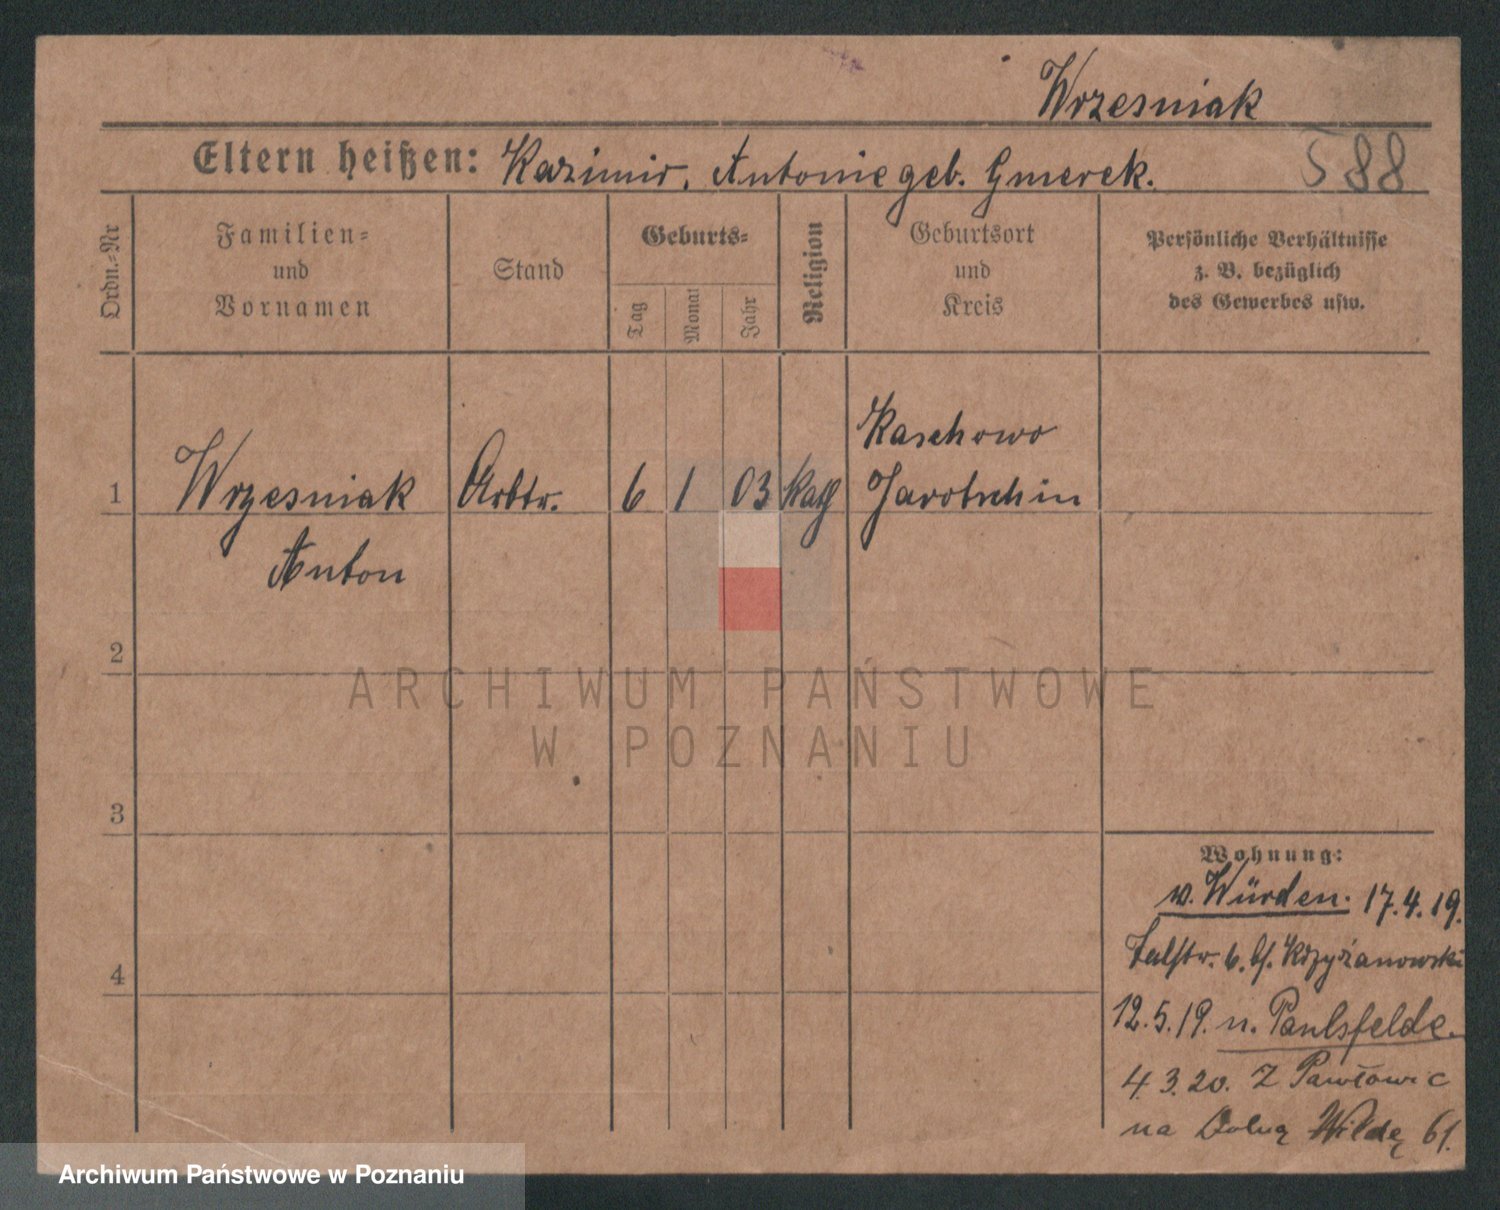 Wrzesniak
Eltern heißen: Kazimir, Antonie geb. Gmerek.
588
Ordn.-Nr
Familien-
und
Vornamen
Stand
Geburts-
Tag
Monat
Jahr
Religion
Geburtsort
und
Kreis
Persönliche Verhältnisse
z. B. bezüglich
des Gewerbes usw.
1 Wrzesniak Arbtr. 6 1 03 Kath Raschowo
Jarotschin
Anton
2
3
4
ARCHIWUM PAŃSTWOWE
W POZNANIU
Wohnung:
v. Würden. 17.4.19.
Talstr. 6. bf. Krzyżanowski
12.5.19. n. Paulsfelde.
4.3.20. Z Pawłowic
na Dolną Wildę 61.
Archiwum Państwowe w Poznaniu